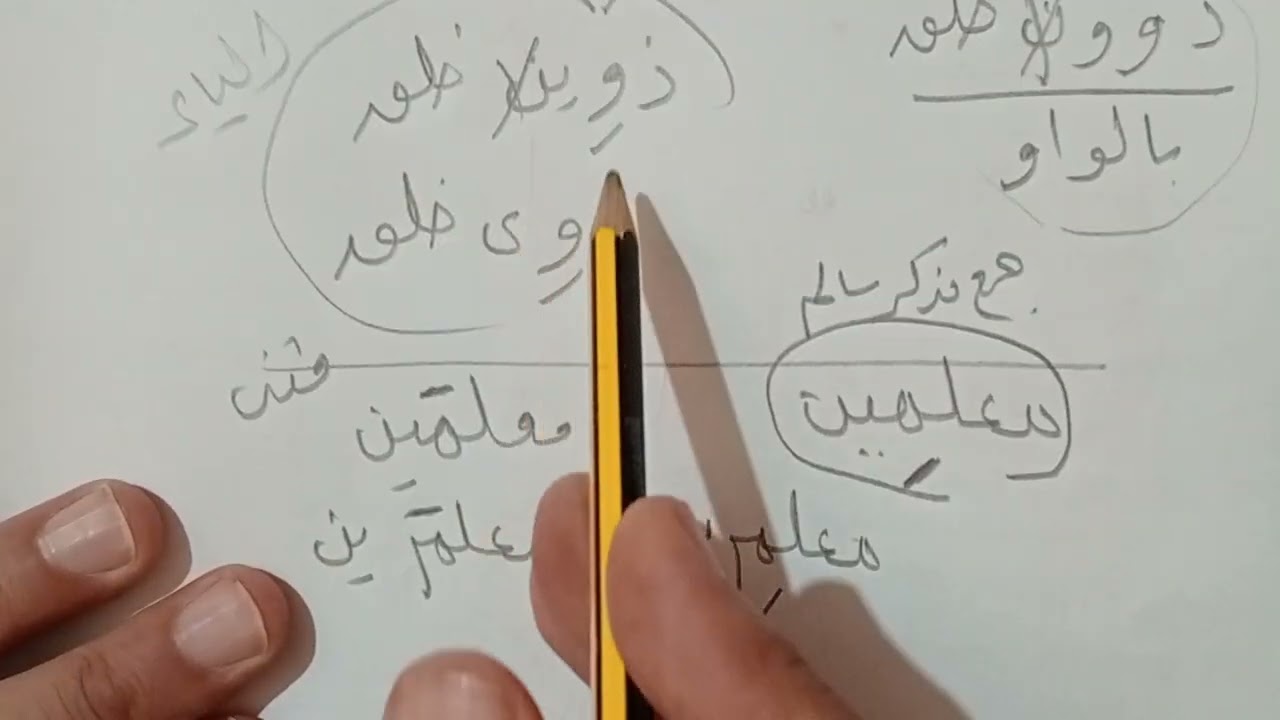 ذوو خلق
بالواو
الياء
ذوِين خلق
وِى خلق
جمع مذكر سالم
معلمِين
مثنى
معلمَين
معلمِ
علمَ ين